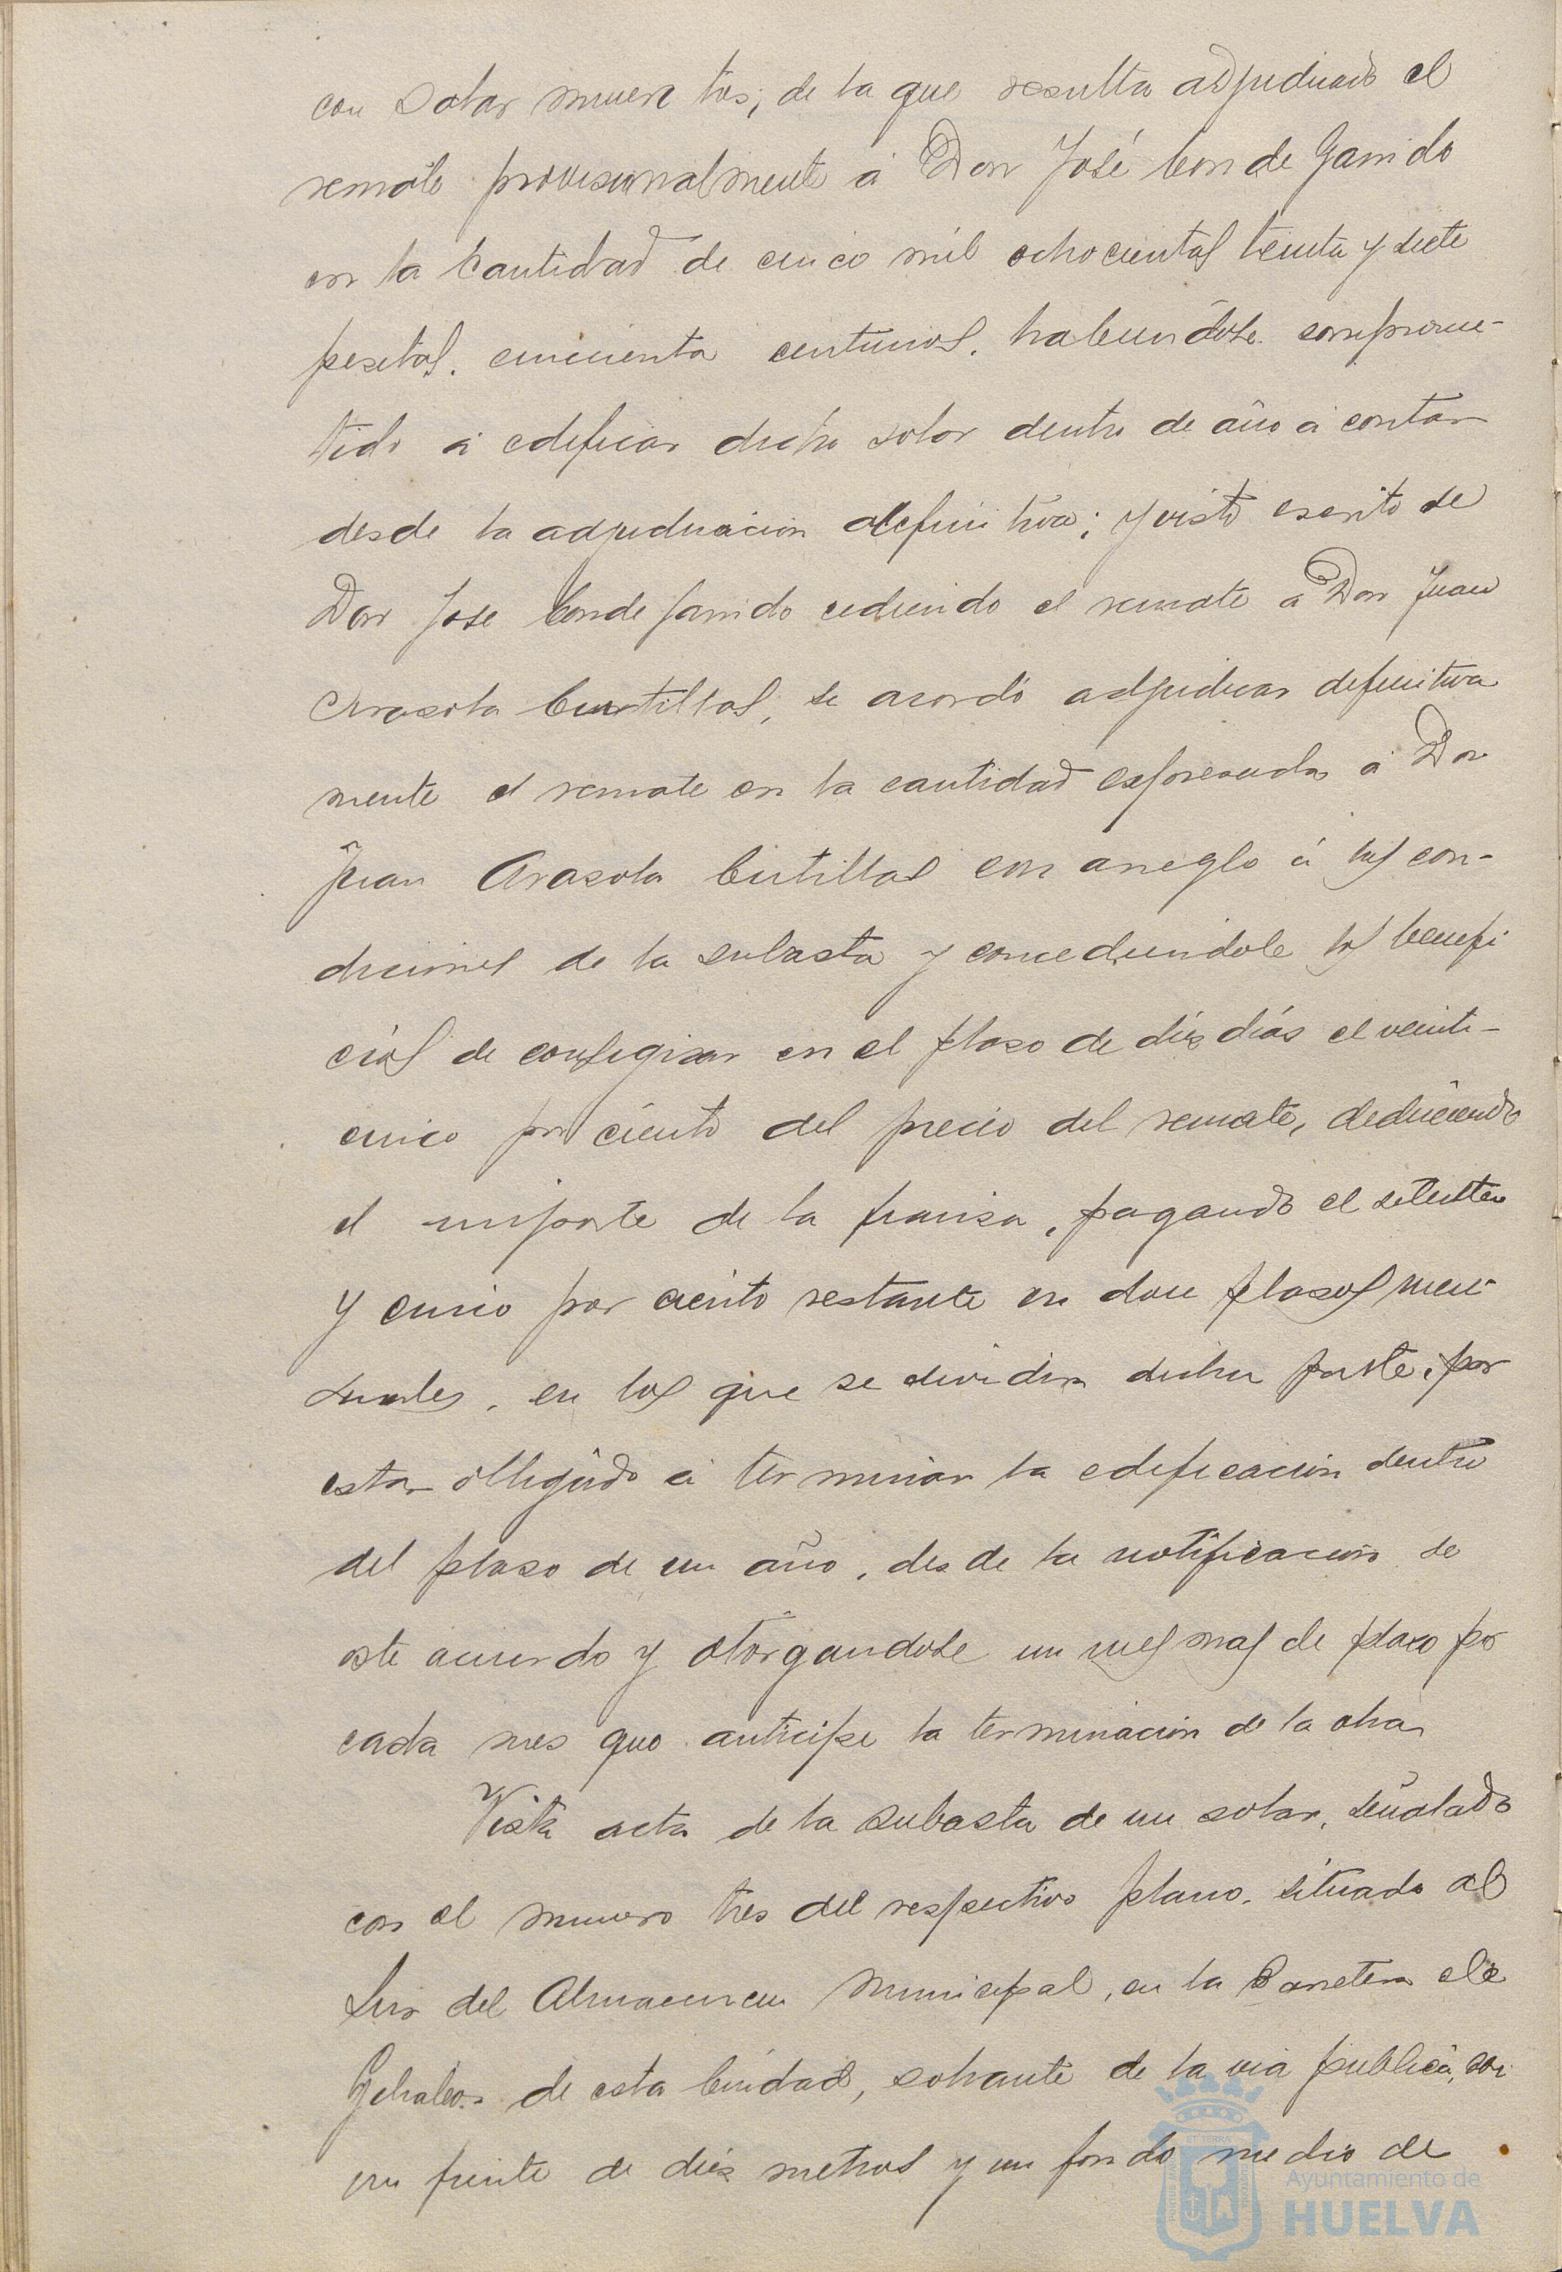 con solar numero tres; de la que resulta adjudicado el
remate provisionalmente á Don José Conde Garrido
en la Cantidad de cinco mil ochocientas treinta y siete
pesetas, cincuenta centimos, habiendose comprome-
tido á edificar dicho solar dentro de año á contar
desde la adjudicación definitiva; y visto escrito de
Don Jose Conde Garrido cediendo el remate a Don Juan
Arazola Cintillas, se acordó adjudicar definitiva
mente el remate en la cantidad expresada á Don
Juan Arazola Cintillas con arreglo á las con-
diciones de la subasta y concediendole los benefi
cios de consignar en el plaso de dies dias el veinti-
cinco por ciento del precio del remate, deduciendo
el importe de la fianza, pagando el setenta
y cinco por ciento restante en doce plasos men-
suales, en los que se dividira dicha parte, por
estar obligado á terminar la edificación dentro
del plaso de un año, desde la notificacion de
este acuerdo y otorgandole un mes mas de plazo por
cada mes que anticipe la terminación de la obra
Vista acta de la subasta de un solar, señalado
con el numero tres del respectivo plano, situado al
Sur del Almacen Municipal, en la Carretera de
Gibraleon de esta Ciudad, sobrante de la via publica, con
un frente de dies metros y un fondo medio de
Ayuntamiento de
HUELVA